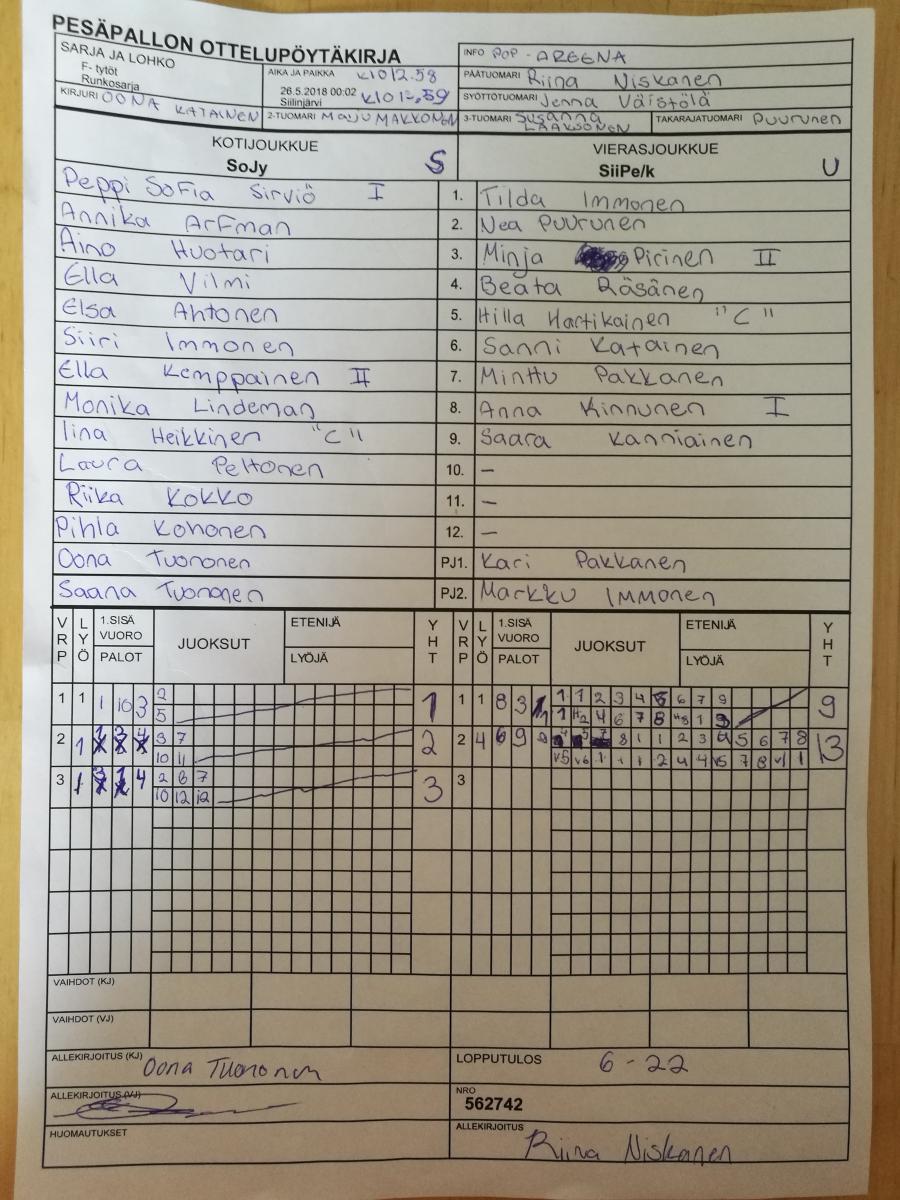 PESÄPALLON OTTELUPÖYTÄKIRJA
SARJA JA LOHKO
F- tytöt
Runkosarja
AIKA JA PAIKKA K1012.58
26.5.2018 00:02 K1012,59
Siilinjärvi
INFO POP - AREENA
PÄÄTUOMARI Riina Niskanen
SYÖTTÖTUOMARI Jenna Väistölä
KIRJURI OONA KATAINEN
2-TUOMARI MAIJU MAKKONEN
3-TUOMARI Susanna LAAKSONEN
TAKARAJATUOMARI Puurunen
KOTIJOUKKUE
SoJy S
VIERASJOUKKUE
SiiPe/k U
Peppi Sofia Sirviö I 1. Tilda Immonen
Annika Arfman 2. Nea Puurunen
Aino Huotari 3. Minja Pirinen II
Ella Vilmi 4. Beata Räsänen
Elsa Ahtonen 5. Hilla Hartikainen "C"
Siiri Immonen 6. Sanni Katainen
Ella Kemppainen II 7. Minttu Pakkanen
Monika Lindeman 8. Anna Kinnunen I
Iina Heikkinen "C" 9. Saara Kanniainen
Laura Peltonen 10. –
Riika Kokko 11. –
Pihla Kohonen 12. –
Oona Tuononen PJ1. Kari Pakkanen
Saana Tuononen PJ2. Markku Immonen
VRP LYÖ 1.SISÄ VUORO PALOT JUOKSUT ETENIJÄ LYÖJÄ YHT VRP LYÖ 1.SISÄ VUORO PALOT JUOKSUT ETENIJÄ LYÖJÄ YHT
1 1 1 10 3 2 1 1 1 8 3 1 1 2 3 4 5 6 7 9 9
5
2 1 3 7 2 2 4 6 9 8 1 1 2 3 4 5 6 7 8 13
10 11
3 1 4 2 6 7 3 3
10 12 12
VAIHDOT (KJ)
VAIHDOT (VJ)
ALLEKIRJOITUS (KJ) Oona Tuononen
LOPPUTULOS 6 - 22
ALLEKIRJOITUS (VJ)
NRO
562742
HUOMAUTUKSET
ALLEKIRJOITUS Riina Niskanen